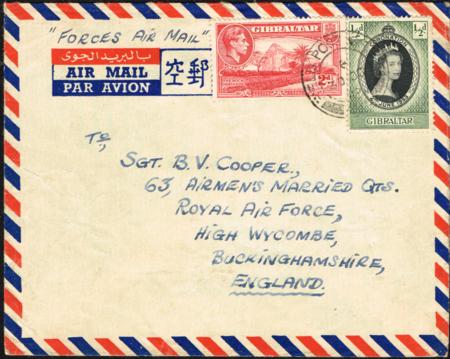 "FORCES AIR MAIL"
بالبريد الجوى
AIR MAIL
PAR AVION
空郵
GIBRALTAR
2D
½D
CORONATION
2ND JUNE 1953
GIBRALTAR
To,
SGT. B.V. COOPER.,
63, AIRMEN'S MARRIED QTS.
ROYAL AIR FORCE,
HIGH WYCOMBE,
BUCKINGHAMSHIRE,
ENGLAND.